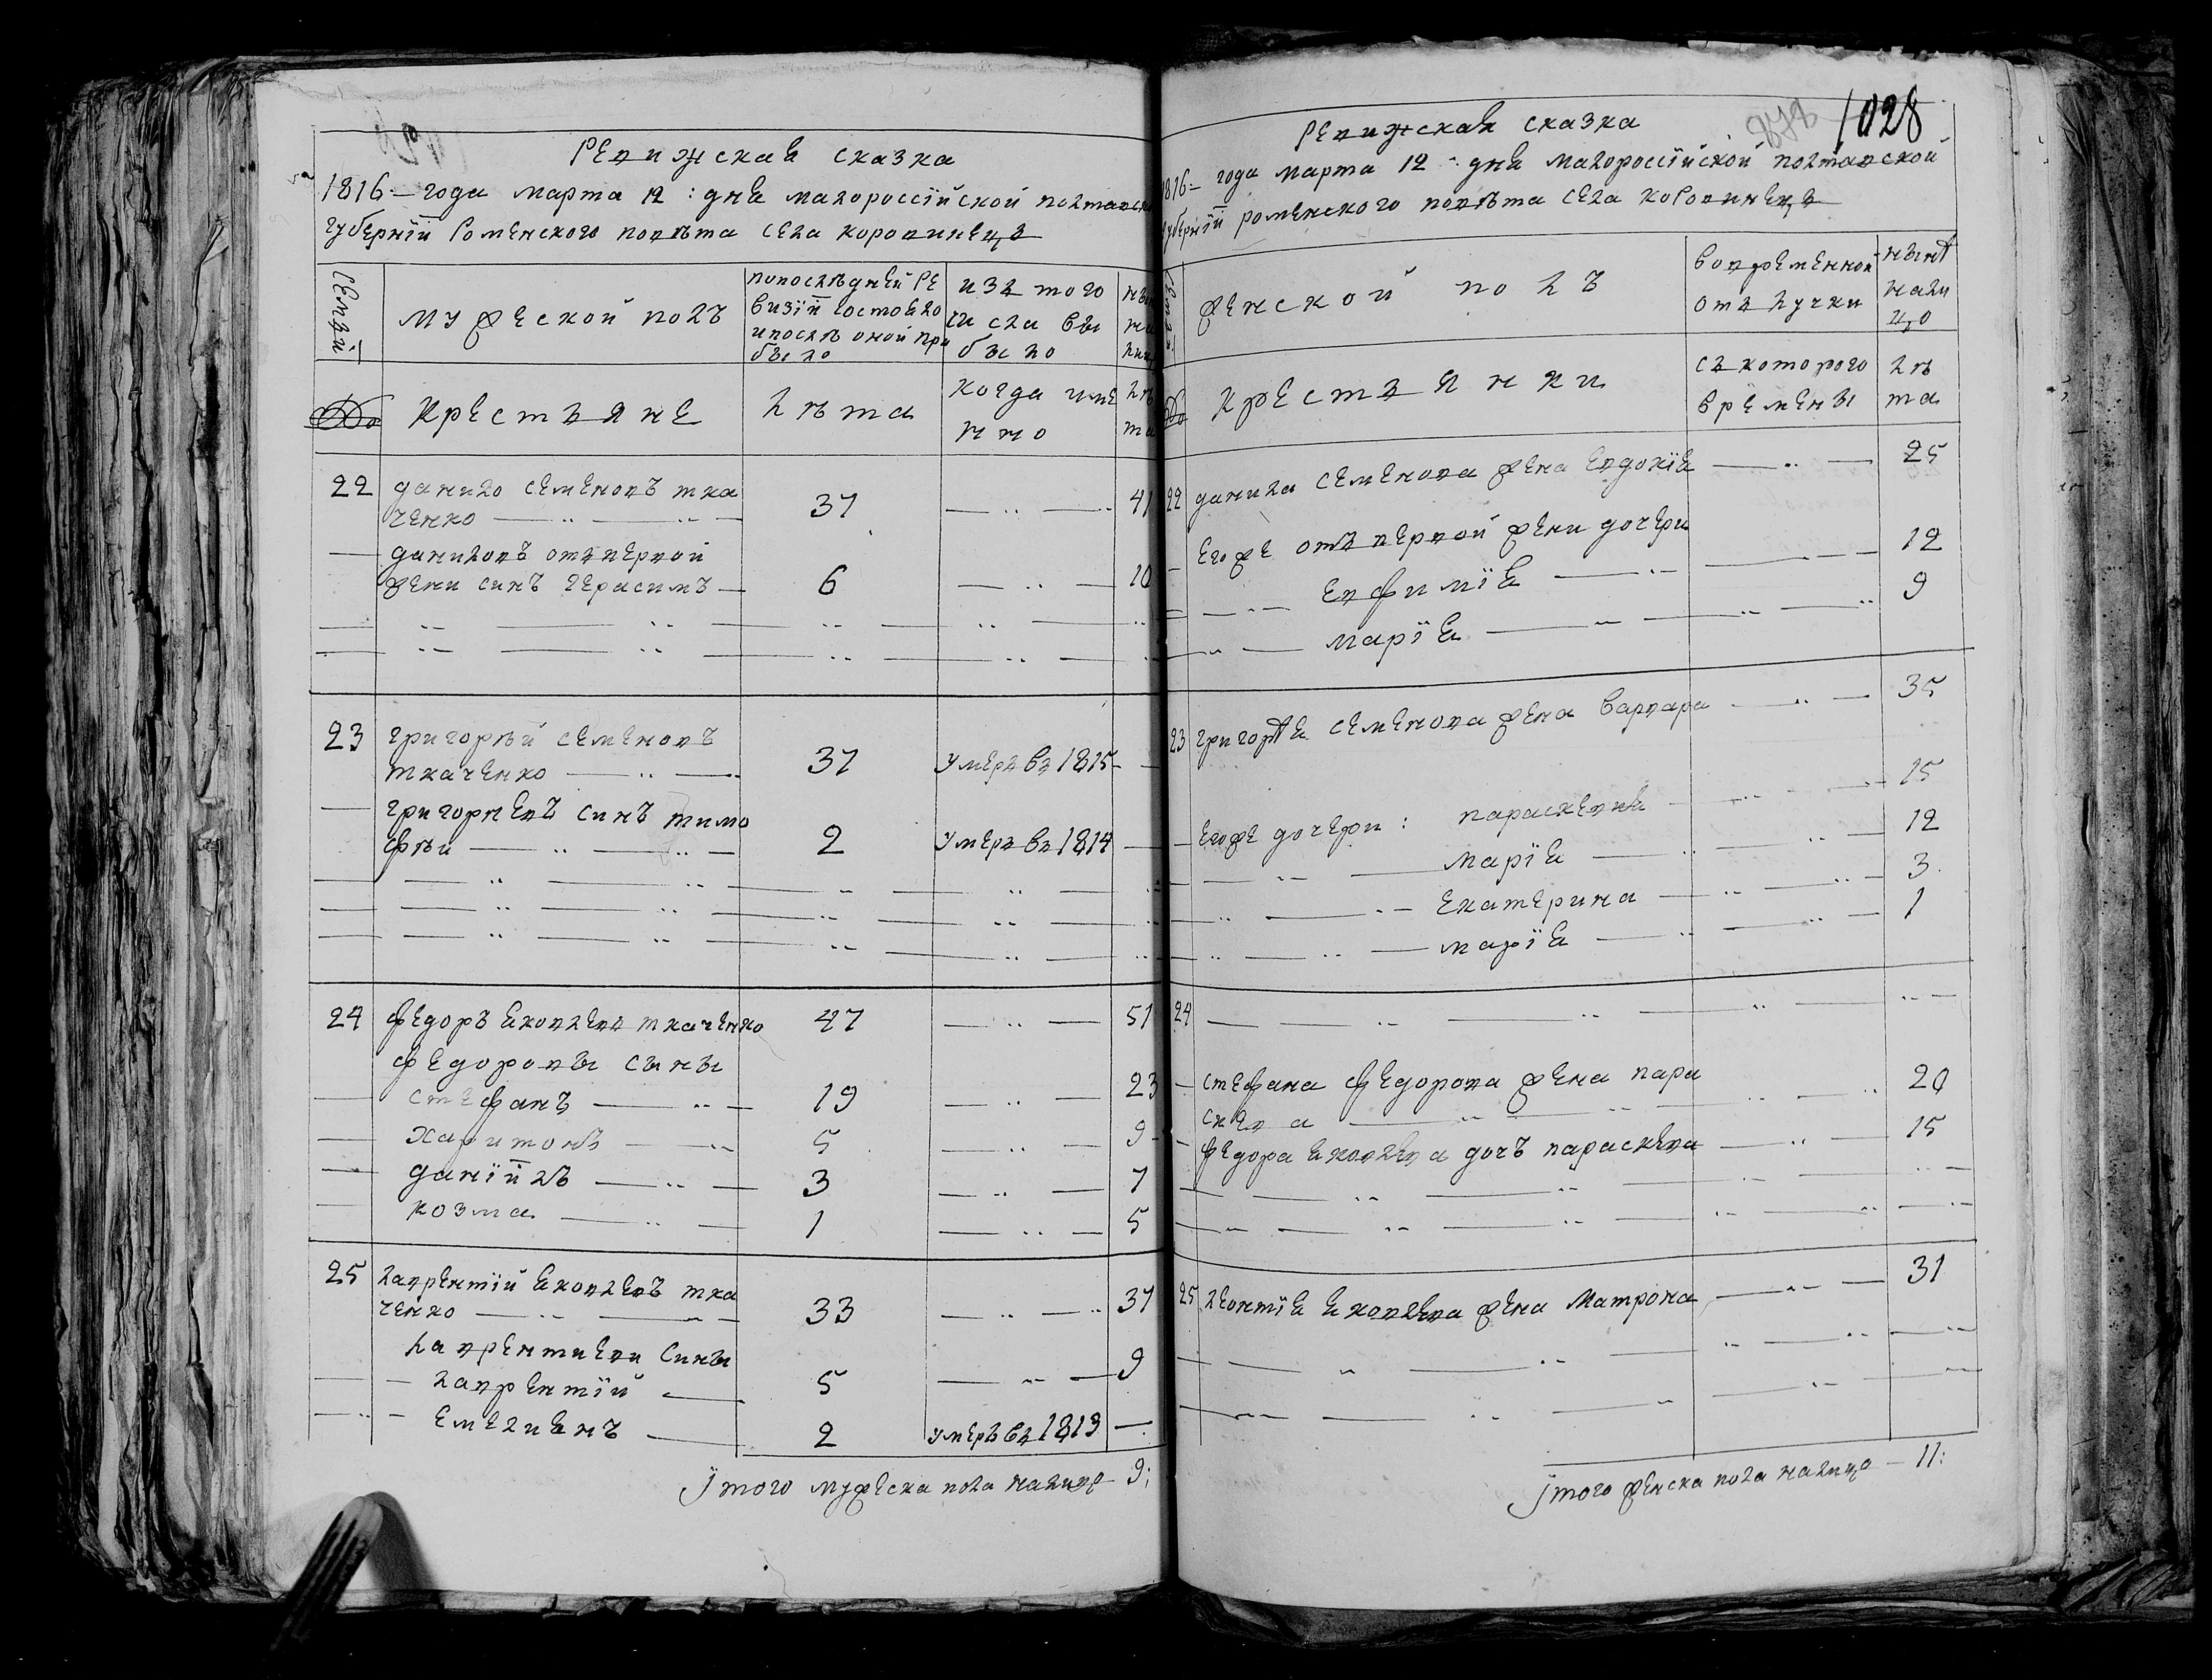 Ревижская сказка
1816: года марта 12: дня малороссійской полтавско
губерніи Роменского повѣта села коровинецъ
Семьи
мужеской полъ
попослѣдней ре
визіи состояло
и послѣ оной при
было
изъ того
числа вы
было
№
Крестьяне
лѣта
когда име
нно
лѣ
та
22 данило семеновъ тка
ченко 37 41
даниловъ отъ первой
жени синъ герасимъ 6 10
23 григорѣй семеновъ
ткаченко 37 умеръ въ 1815
григорѣевъ синъ тимо
фѣй 2 умеръ въ 1814
24 федоръ яковлевъ ткаченко 47 51
федоровы сыны
стефанъ 19 23
харитонъ 5 9
даніилъ 3 7
козма 1 5
25 лаврентій яковлевъ тка
ченко 33 37
лаврентиеви сины
лаврентій 5 9
емелиянъ 2 умеръ въ 1813
Итого мужеска пола налицо 9:
1028
Ревижская сказка
1816 года марта 12: дня малороссійской полтавской
губерніи роменского повѣта села коровинецъ
женской полъ
вовременной
отлучки
нынѣ
нали
цо
№
крестьянки
съ которого
времены
лѣ
та
22 данила семенова жена евдокія 25
егоже отъ первой жени дочери
евфимія 12
марія 9
23 григорѣя семенова жена варвара 35
егоже дочери: параскевия 15
марія 12
екатерина 3
марія 1
24
стефана федорова жена пара
скева 20
федора яковлева дочъ параскева 15
25 леонтія яковлева жена матрона 31
Итого женска пола налицо 11: